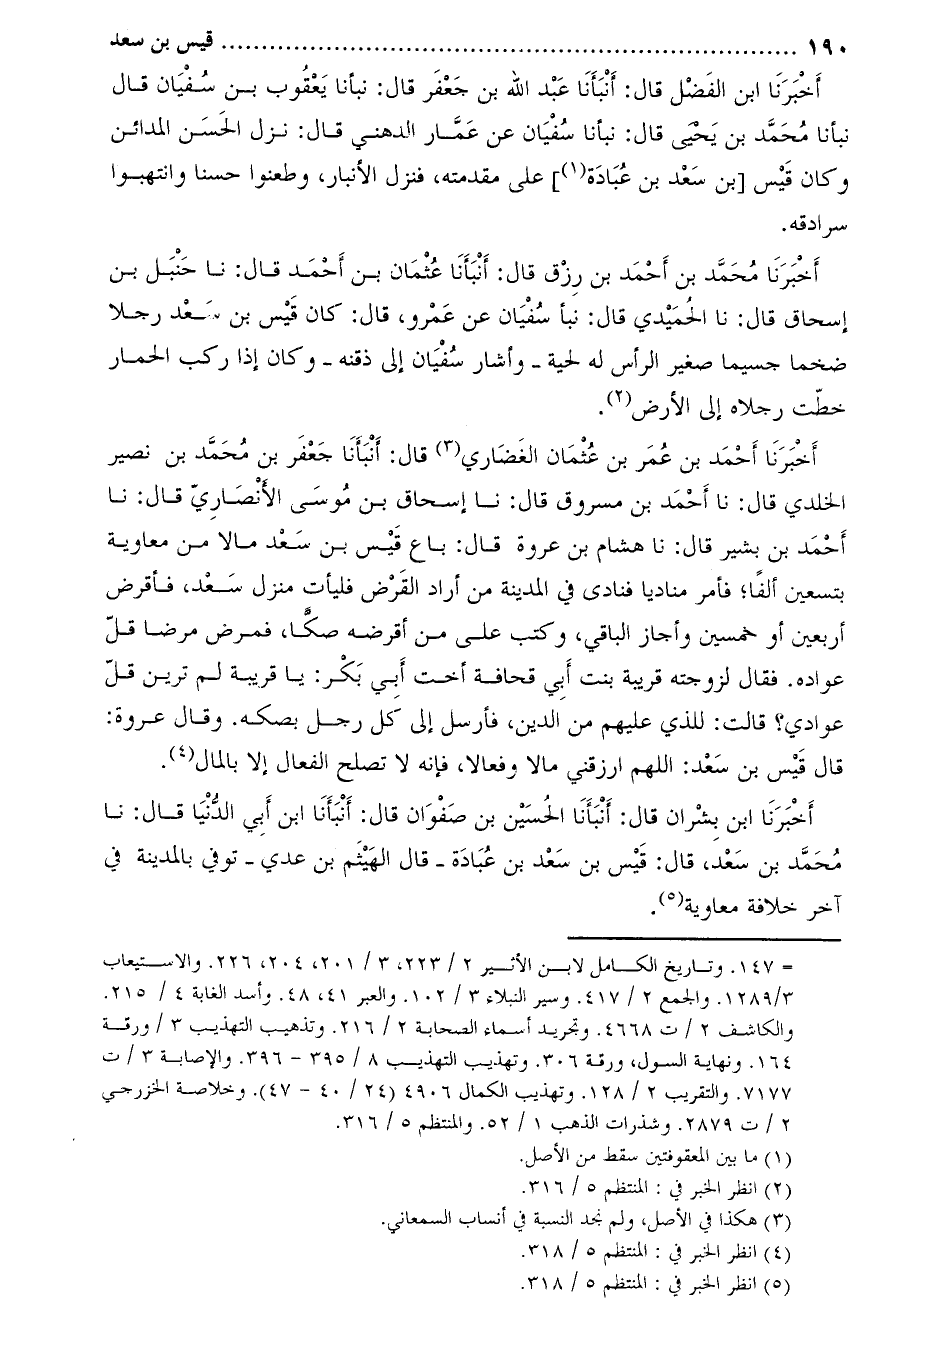 ١٩٠ ........................................................................ قيس بن سعد
أَخْبَرَنَا ابن الفَضْل قال: أَنْبَأَنَا عَبْد الله بن جَعْفَر قال: نبأنا يَعْقُوب بـن سُـفْيَان قـال
نبأنا مُحَمَّد بن يَحْيَى قال: نبأنا سُفْيَان عن عَمَّـار الدهني قـال: نـزل الحَسَـن المدائـن
وكان قَيْس [بن سَعْد بن عُبَادَة(١)] على مقدمته، فنزل الأنبار، وطعنوا حسنا وانتهبـوا
سرادقه.
أَخْبَرَنَا مُحَمَّد بن أَحْمَد بن رزْق قال: أَنْبَأَنَا عُثْمَان بـن أَحْمَـد قـال: نـا حَنْبَـل بـن
إسحاق قال: نا الحُمَيْدي قال: نبأ سُفْيَان عن عَمْرو، قال: كان قَيْس بن سَـعْد رجـلا
ضخما جسيما صغير الرأس له لحية ـ وأشار سُفْيَان إلى ذقنه ـ وكان إذا ركب الحمـار
خطّت رجلاه إلى الأرض(٢).
أَخْبَرَنَا أَحْمَد بن عُمَر بن عُثْمَان الغَضَاري(٣) قال: أَنْبَأَنَا جَعْفَر بن مُحَمَّد بن نصير
الخلدي قال: نا أَحْمَد بن مسروق قال: نـا إسـحاق بـن مُوسَـى الأَنْصَـارِيّ قـال: نـا
أَحْمَد بن بشير قال: نا هشام بن عروة قـال: بـاع قَيْـس بـن سَـعْد مـالا مـن معاوية
بتسعين ألفًا؛ فأمر مناديا فنادى في المدينة من أراد القَرْض فليأت منزل سَـعْد، فـأقرض
أربعين أو خمسين وأجاز الباقي، وكتب علـى مـن أقرضـه صكًّـا، فمـرض مرضـا قـلّ
عواده. فقال لزوجته قريبة بنت أَبِي قحافـة أخـت أَبِي بَكْـر: يـا قريبـة لـم تريـن قـلّ
عوادي؟ قالت: للذي عليهم من الدين، فأرسل إلى كل رجـل بصكـه. وقـال عـروة:
قال قَيْس بن سَعْد: اللهم ارزقني مالا وفعالا، فإنه لا تصلح الفعال إلا بالمال(٤).
أَخْبَرَنَا ابن بِشْران قال: أَنْبَأَنَا الحُسَيْن بن صَفْوَان قال: أَنْبَأَنَا ابن أَبِي الدُّنْيَا قـال: نـا
مُحَمَّد بن سَعْد، قال: قَيْس بن سَعْد بن عُبَادَة ـ قال الهَيْثَم بن عدي ـ توفي بالمدينة في
آخر خلافة معاوية(٥).
= ١٤٧. وتـاريخ الكـامل لابـن الأثـير ٢ / ٢٢٣، ٣ / ٢٠١، ٢٠٤، ٢٢٦. والاسـتيعاب
١٢٨٩/٣. والجمع ٢ / ٤١٧. وسير النبلاء ٣ / ١٠٢. والعبر ٤١، ٤٨. وأسد الغابة ٤ / ٢١٥.
والكاشف ٢ / ت ٤٦٦٨. وتجريد أسماء الصحابة ٢ / ٢١٦. وتذهيب التهذيب ٣ / ورقـة
١٦٤. ونهاية السول، ورقة ٣٠٦. وتهذيب التهذيـب ٨ / ٣٩٥ – ٣٩٦. والإصابـة ٣ / ت
٧١٧٧. والتقريب ٢ / ١٢٨. وتهذيب الكمال ٤٩٠٦ (٢٤ / ٤٠ – ٤٧). وخلاصـة الخزرجي
٢ / ت ٢٨٧٩. وشذرات الذهب ١ / ٥٢. والمنتظم ٥ / ٣١٦.
(١) ما بين المعقوفتين سقط من الأصل.
(٢) انظر الخبر في : المنتظم ٥ / ٣١٦.
(٣) هكذا في الأصل، ولم نجد النسبة في أنساب السمعاني.
(٤) انظر الخبر في : المنتظم ٥ / ٣١٨.
(٥) انظر الخبر في : المنتظم ٥ / ٣١٨.